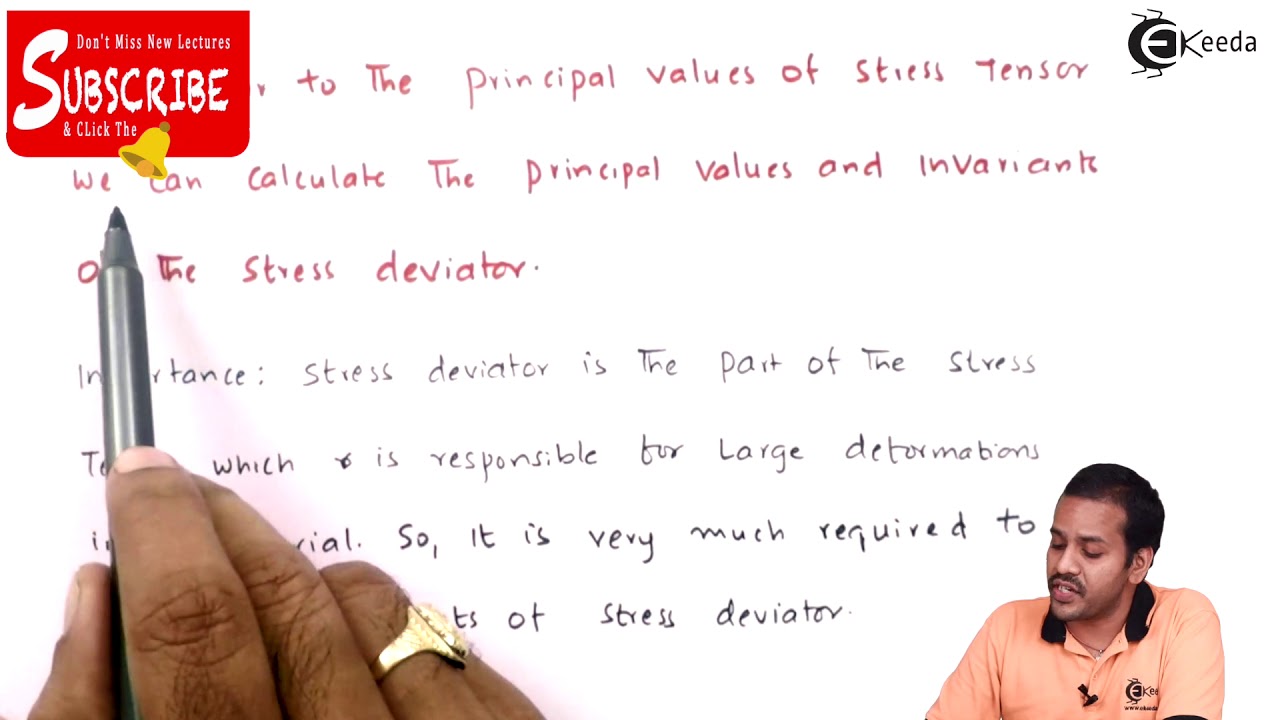 Don't Miss New Lectures
SUBSCRIBE
& CLick The
EKeeda
to The principal values of stress Tensor
we can calculate The principal values and Invariants
The stress deviator.
stress deviator is The part of The stress
which is responsible for Large deformations
So, It is very much required to
of stress deviator.
EKee
www.ekeeda